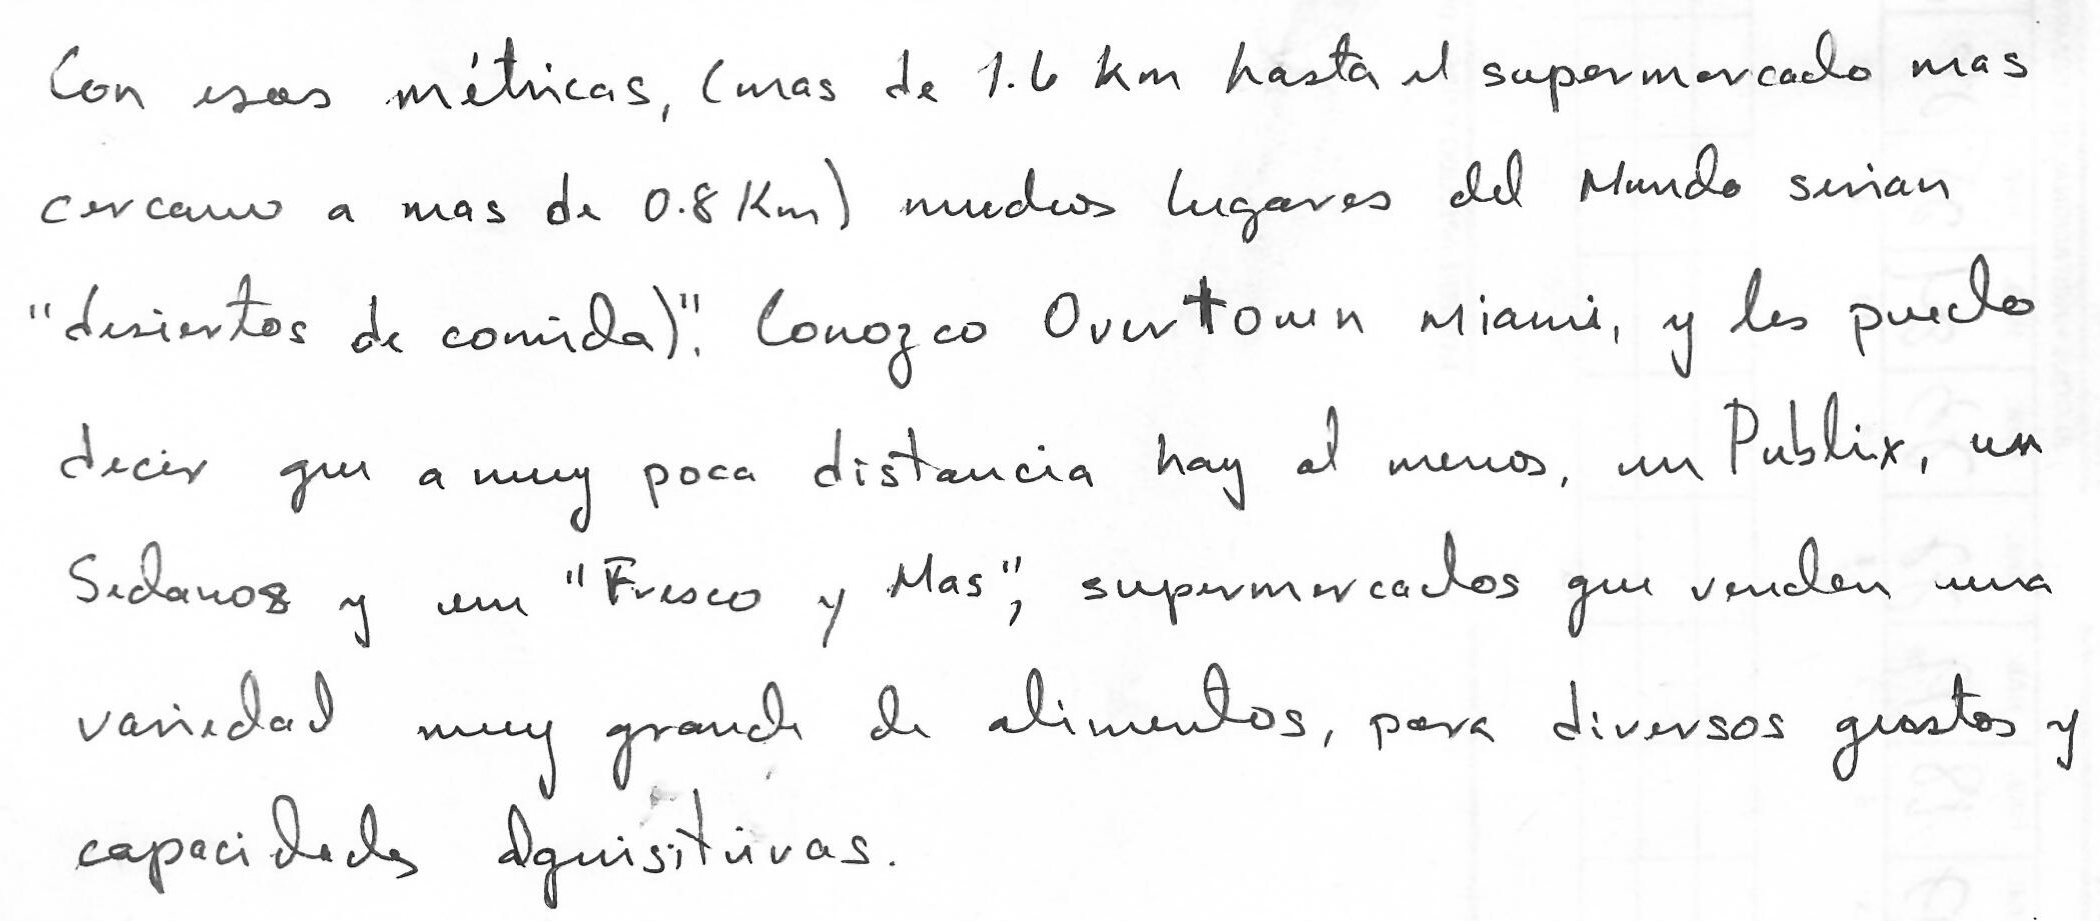 Con esas métricas, (mas de 1.6 km hasta el supermercado mas
cercano a mas de 0.8 Km) muchos lugares del Mundo serian
"desiertos de comida)". Conozco Overtown Miami, y les puedo
decir que a muy poca distancia hay al menos, un Publix, un
Sedanos y un "Fresco y Mas", supermercados que venden una
variedad muy grande de alimentos, para diversos gustos y
capacidades adquisitivas.